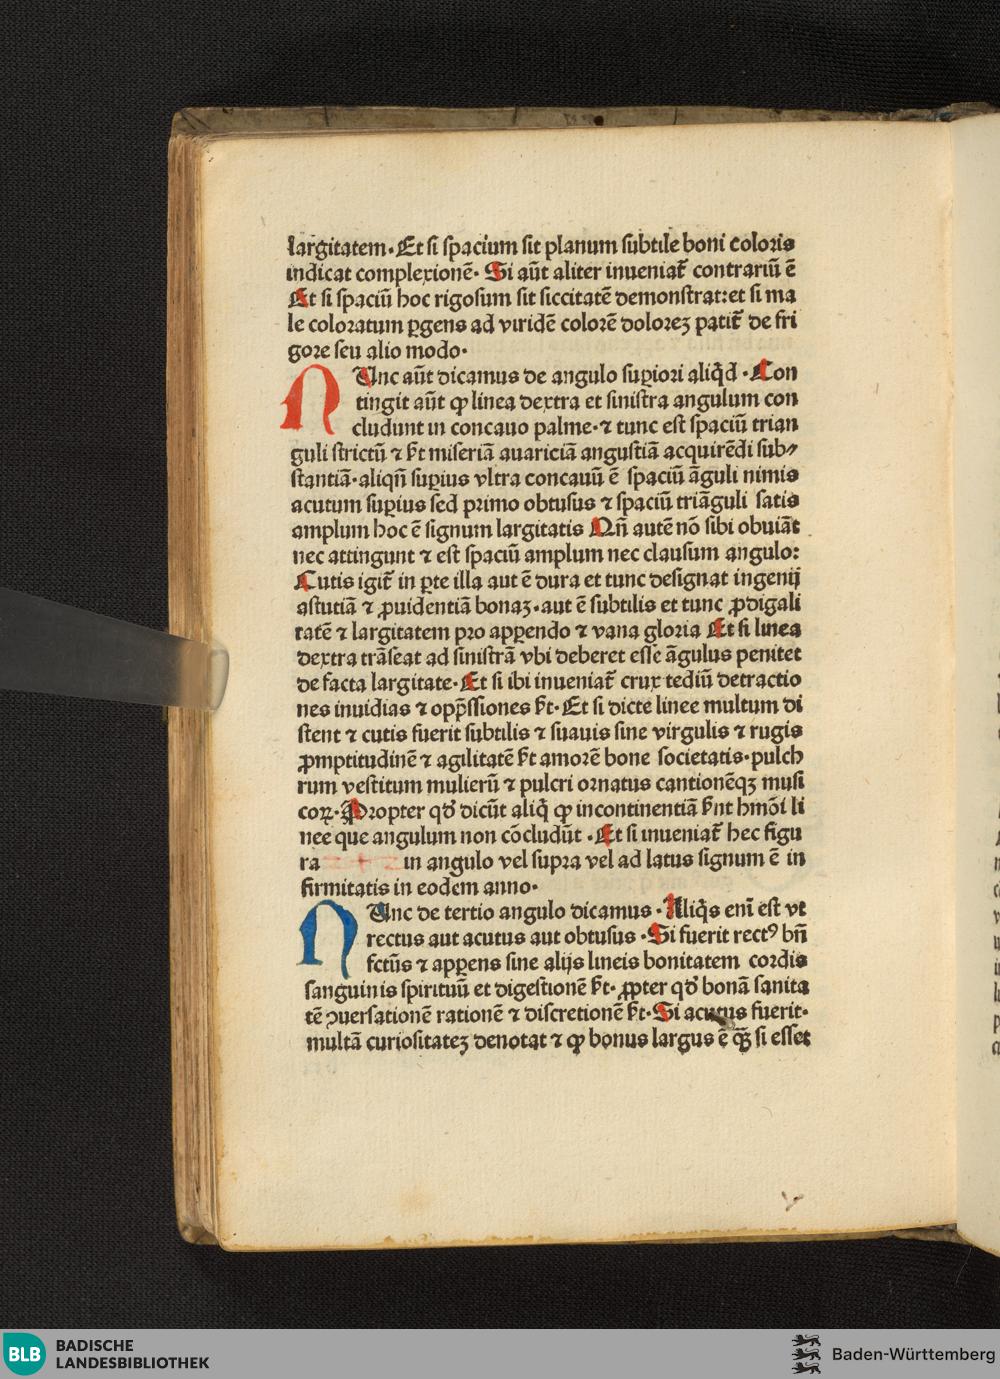 largitatem. Et si spacium sit planum subtile boni coloris
indicat complexionē. Si aūt aliter inueniat᷑ contrariū ē
Et si spaciū hoc rigosum sit siccitatē demonstrat: et si ma
le coloratum ꝑgens ad viridē colorē dolorēꝫ patit᷑ de fri
gore seu alio modo.
NUnc aūt dicamus de angulo suꝑiori aliq̄d . Con
tingit aūt ꝙ linea dextra et sinistra angulum con
cludunt in concauo palme. ⁊ tunc est spaciū trian
guli strictū ⁊ hr̄t miseriā auariciā angustiā acquirēdi sub⸗
stantiā. aliqn̄ suꝑius vltra concauū ē spaciū āguli nimis
acutum suꝑius sed primo obtusus ⁊ spaciū triāguli satis
amplum hoc ē signum largitatis Qn̄ autē nō sibi obuiāt
nec attingunt ⁊ est spaciū amplum nec clausum angulo:
Cutis igit᷑ in ꝑte illa aut ē dura et tunc designat ingenij
astutiā ⁊ ꝓuidentiā bonaꝫ. aut ē subtilis et tunc ꝓdigali
tatē ⁊ largitatem pro apꝑendo ⁊ vana gloria Et si linea
dextra trāseat ad sinistrā vbi deberet esse āgulus penitet
de facta largitate. Et si ibi inueniat᷑ crux tediū detractio
nes inuidias ⁊ opp̄ssiones hr̄t. Et si dicte linee multum di
stent ⁊ cutis fuerit subtilis ⁊ suauis sine virgulis ⁊ rugis
ꝓmptitudinē ⁊ agilitatē hr̄t amorē bone societatis. pulch
rum vestitum mulierū ⁊ pulcri ornatus cantionēqꝫ musi
coꝝ. Propter qd̄ dicūt aliq̄ ꝙ incontinentiā hn̄t hmōi li
nee que angulum non cōcludūt . Et si inueniat᷑ hec figu
ra in angulo vel supra vel ad latus signum ē in
firmitatis in eodem anno.
NUnc de tertio angulo dicamus . Aliq̄s eni est vt
rectus aut acutus aut obtusus . Si fuerit rectꝰ bn̄
fctūs ⁊ apꝑens sine alijs lineis bonitatem cordis
sanguinis spirituū et digestionē hr̄t. ꝓpter qd̄ bonā sanita
tē ꝯuersationē rationē ⁊ discretionē hr̄t. Si acutus fuerit.
multā curiositateꝫ denotat ⁊ ꝙ bonus largus ē qꝫ̄ si esset
BLB
BADISCHE
LANDESBIBLIOTHEK
Baden-Württemberg